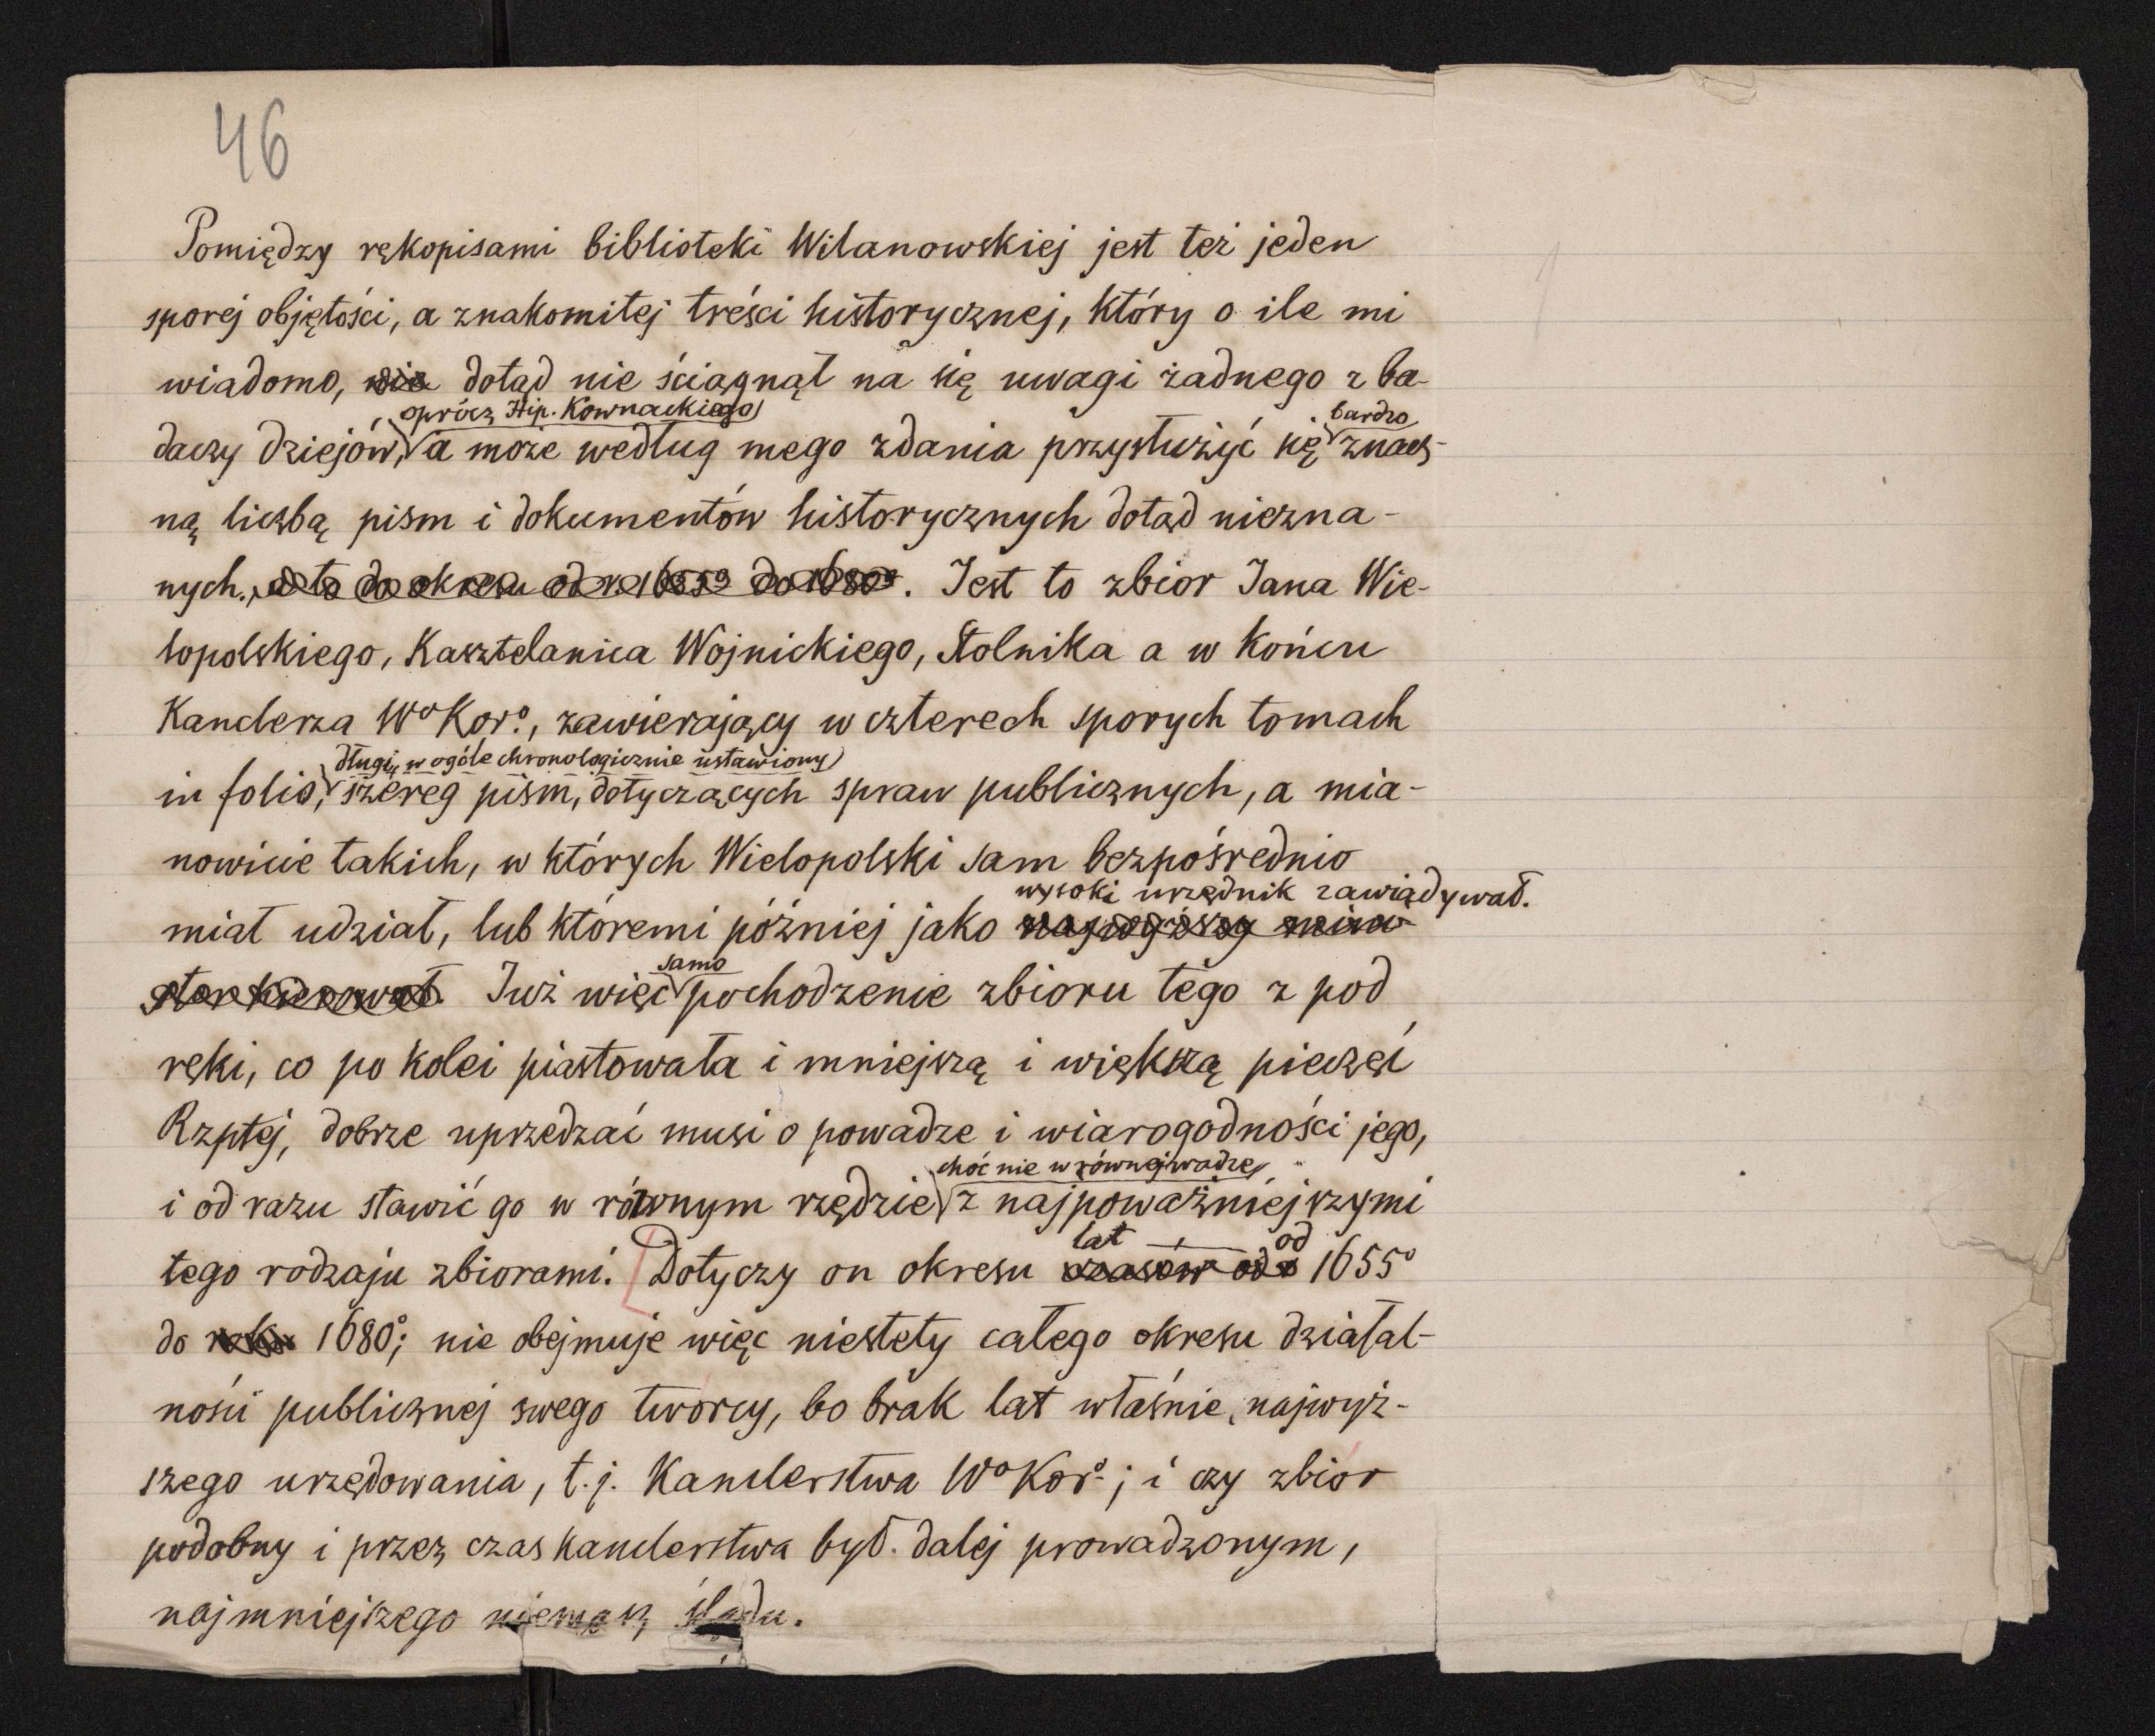 46
Pomiędzy rękopisami biblioteki Wilanowskiej jest też jeden
sporéj objętości, a znakomitej treści historycznej, który o ile mi
wiadomo, nie dotąd nie ściągnął na się uwagi żadnego z ba-
oprócz Hip. Kownackiego bardzo
daczy dziejów, a może według mego zdania przysłużyć się znacz-
ną liczbą pism i dokumentów historycznych dotąd niezna-
nych, a to do okresu od r. 1655º do 1680º. Jest to zbior Jana Wie-
lopolskiego, Kasztelanica Wojnickiego, Stolnika a w końcu
Kanclerza Wº Korº., zawierający w czterech sporych tomach
długi, w ogóle chronologicznie ustawiony
in folio, szereg pism, dotyczących spraw publicznych, a mia-
nowicie takich, w których Wielopolski sam bezpośrednio
wysoki urzędnik zawiadywał.
miał udział, lub któremi później jako najwyższy mini-
ster kierował. Już więc pochodzenie zbioru tego z pod
samo
ręki, co po kolei piastowała i mniejszą i większą pieczęć
Rzptéj, dobrze uprzedzać musi o powadze i wiarogodności jego,
choć nie w równej wadze
i od razu stawić go w równym rzędzie z najpoważniéjszymi
lat od
tego rodzaju zbiorami. Dotyczy on okresu czasów od 1655º
do roku 1680º; nie obejmuje więc niestety całego okresu działal-
ności publicznej swego twórcy, bo brak lat właśnie najwyż-
szego urzędowania, t. j. Kanclerstwa Wº Korº.; i czy zbiór
podobny i przez czas kanclerstwa był dalej prowadzonym,
najmniejszego niemasz śladu.